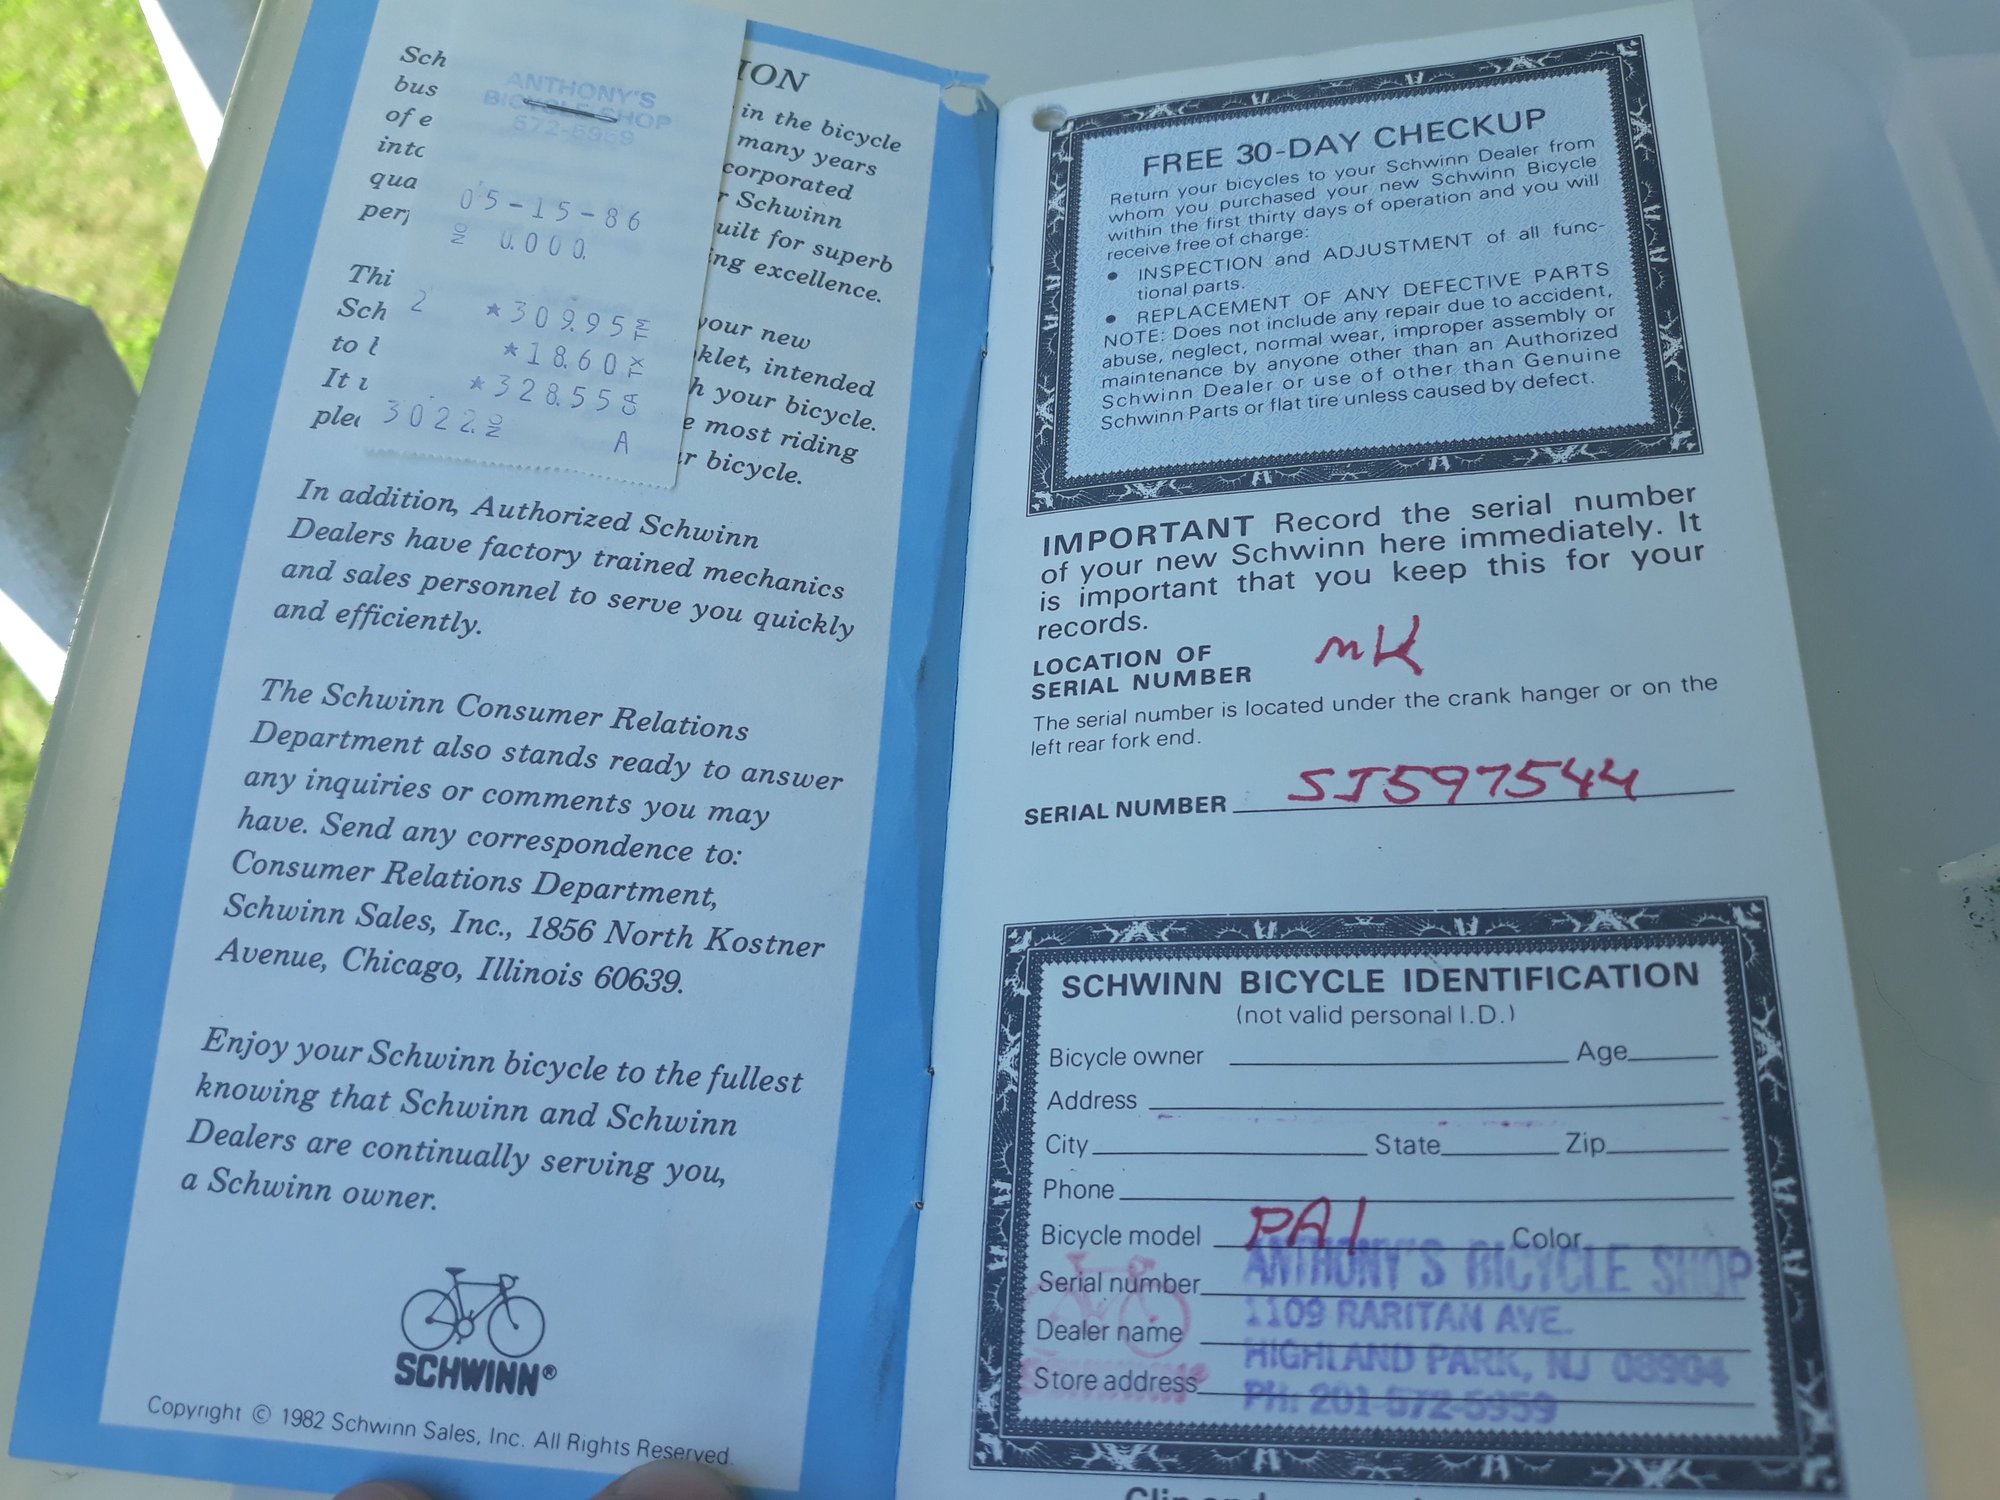 ANTHONY'S
BICYCLE SHOP
572-5959
05-15-86
NO 0.000.
2 *309.95
*18.60TX
*328.55CA
3022.NO A
ION
Sch
bus in the bicycle
of e many years
into corporated
qua r Schwinn
per uilt for superb
ing excellence.
Thi
Sch your new
to l klet, intended
It i h your bicycle.
plea e most riding
r bicycle.
In addition, Authorized Schwinn
Dealers have factory trained mechanics
and sales personnel to serve you quickly
and efficiently.
The Schwinn Consumer Relations
Department also stands ready to answer
any inquiries or comments you may
have. Send any correspondence to:
Consumer Relations Department,
Schwinn Sales, Inc., 1856 North Kostner
Avenue, Chicago, Illinois 60639.
Enjoy your Schwinn bicycle to the fullest
knowing that Schwinn and Schwinn
Dealers are continually serving you,
a Schwinn owner.
SCHWINN®
Copyright © 1982 Schwinn Sales, Inc. All Rights Reserved.
FREE 30-DAY CHECKUP
Return your bicycles to your Schwinn Dealer from
whom you purchased your new Schwinn Bicycle
within the first thirty days of operation and you will
receive free of charge:
• INSPECTION and ADJUSTMENT of all func-
tional parts.
• REPLACEMENT OF ANY DEFECTIVE PARTS
NOTE: Does not include any repair due to accident,
abuse, neglect, normal wear, improper assembly or
maintenance by anyone other than an Authorized
Schwinn Dealer or use of other than Genuine
Schwinn Parts or flat tire unless caused by defect.
IMPORTANT Record the serial number
of your new Schwinn here immediately. It
is important that you keep this for your
records.
LOCATION OF
SERIAL NUMBER
The serial number is located under the crank hanger or on the
left rear fork end.
SERIAL NUMBER SJ597544
SCHWINN BICYCLE IDENTIFICATION
(not valid personal I.D.)
Bicycle owner Age
Address
City State Zip
Phone
Bicycle model PA1 Color
Serial number
Dealer name
Store address
ANTHONY'S BICYCLE SHOP
1109 RARITAN AVE.
HIGHLAND PARK, NJ 08904
PH: 201-572-5959